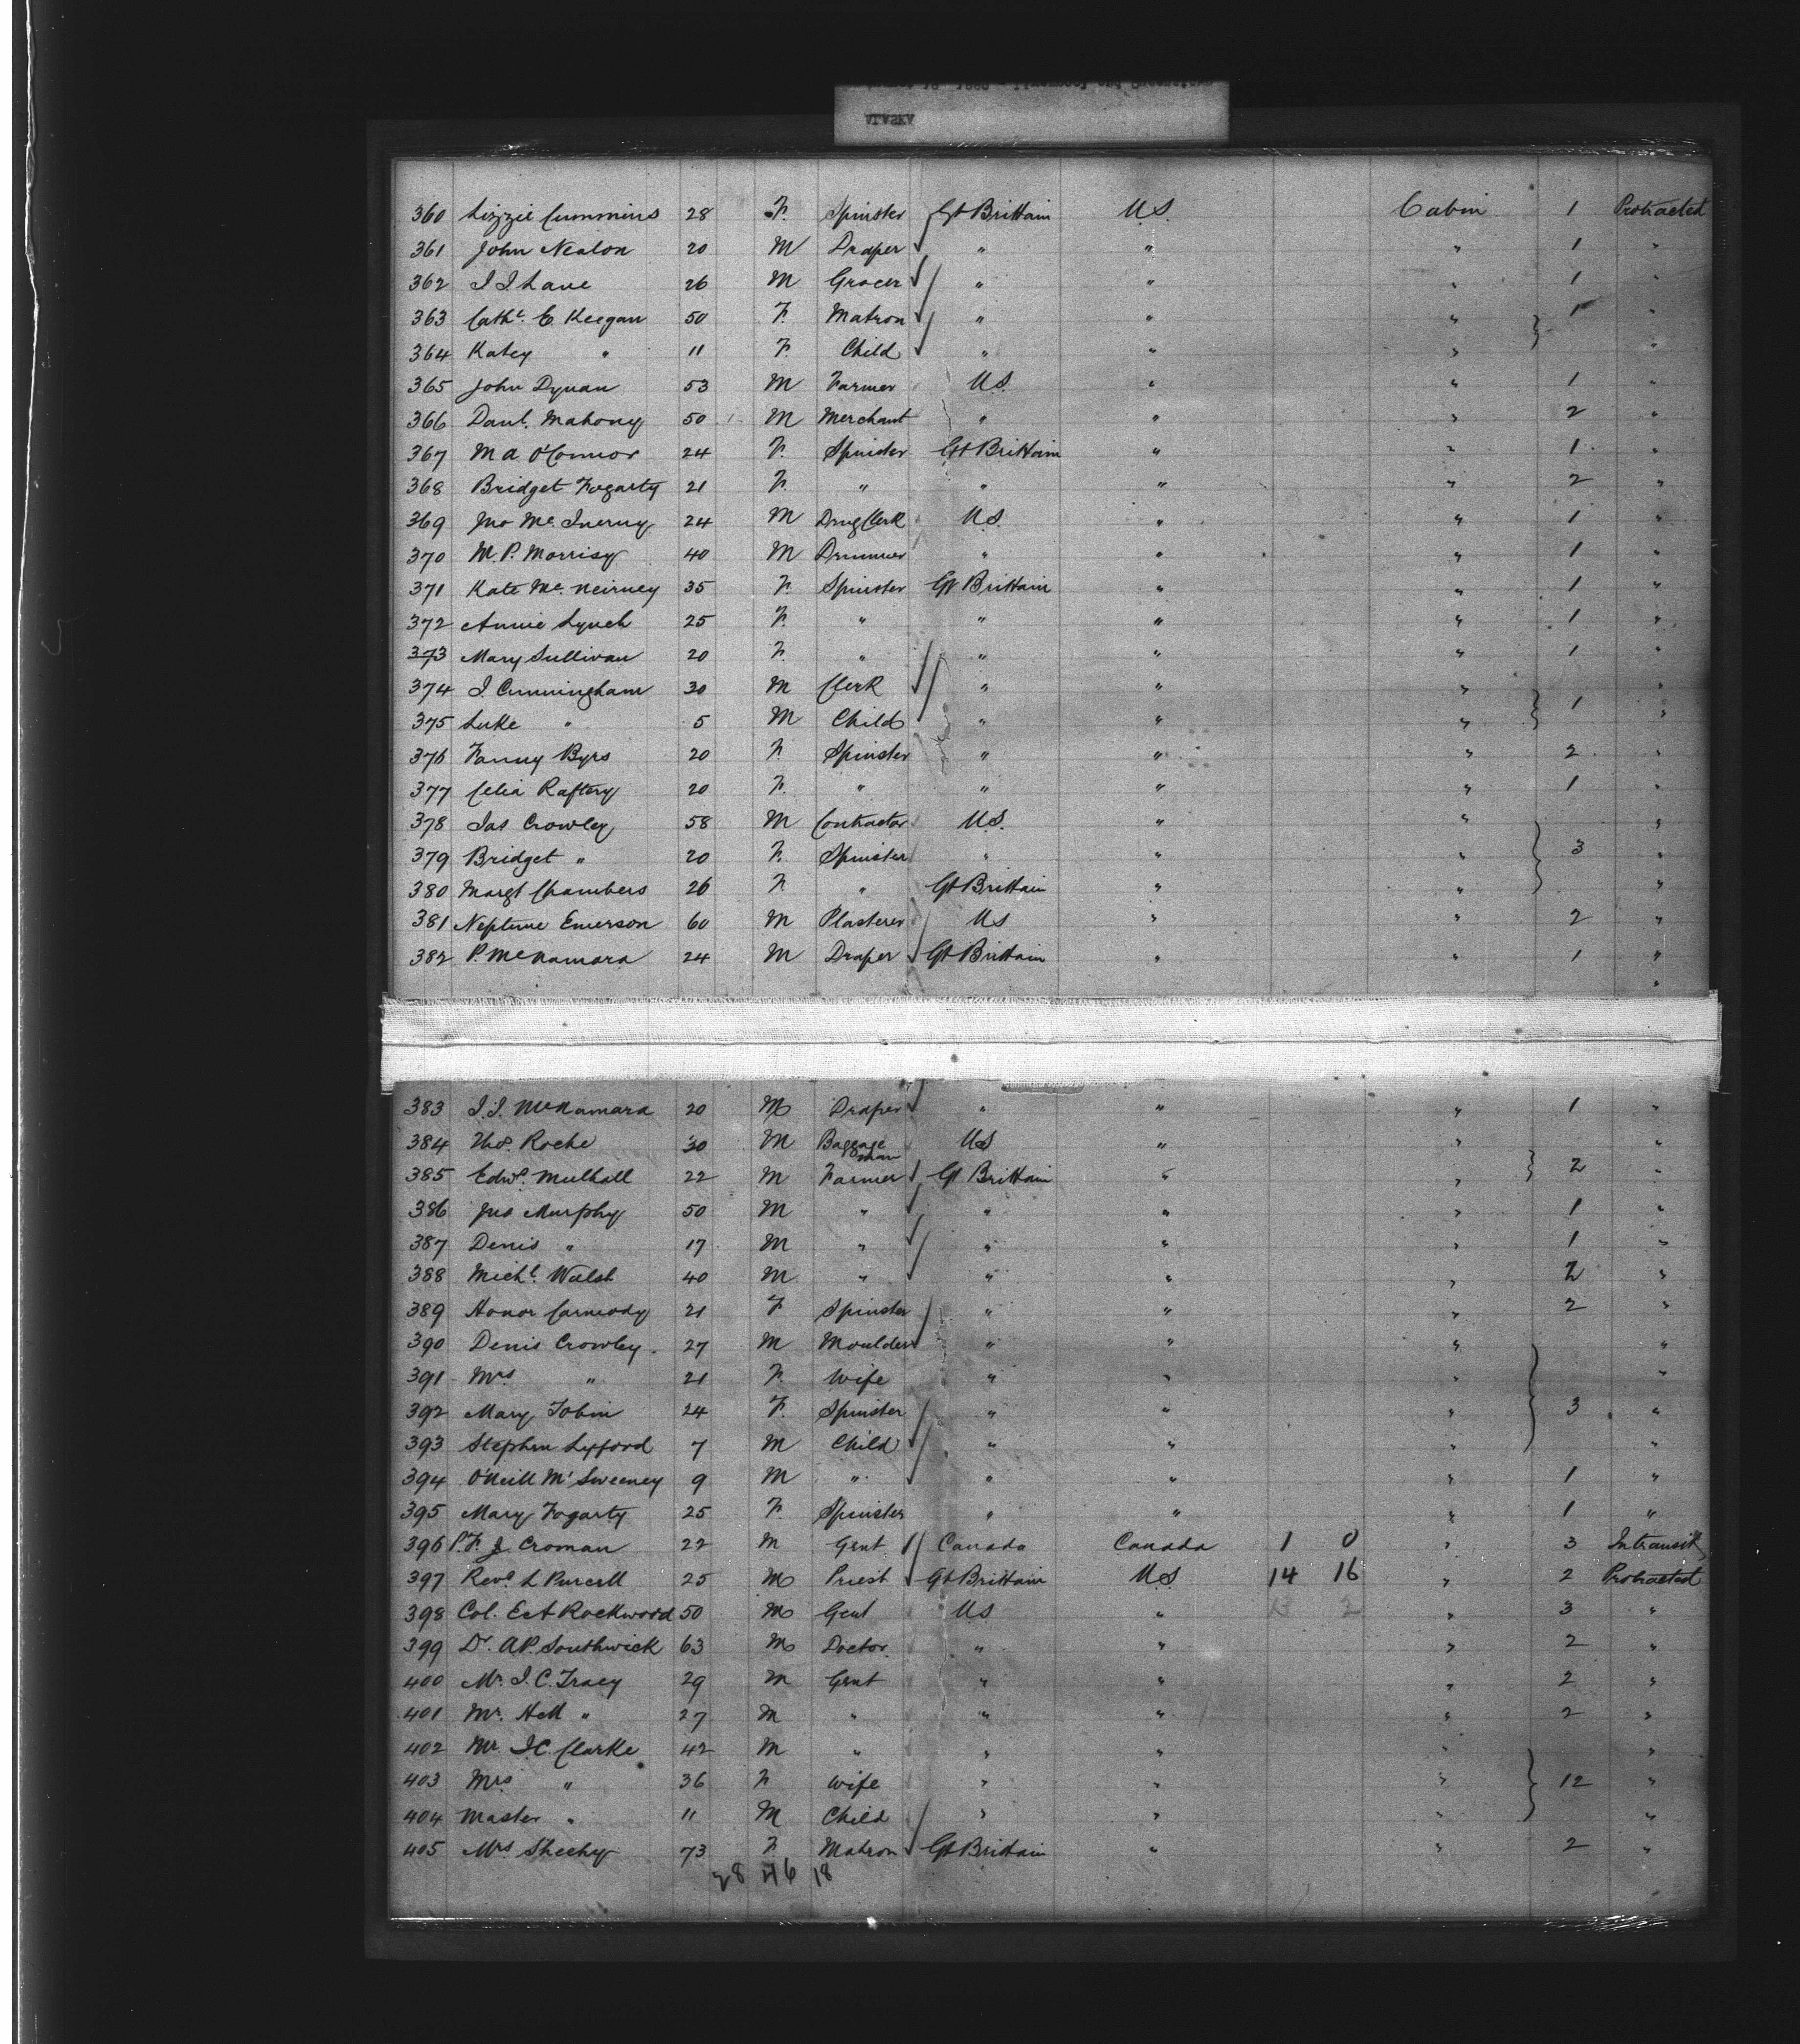 ATASKA
360 Lizzie Cummins 28 F. Spinster Gt Brittain U.S. Cabin 1 Protracted
361 John Nealon 20 M Draper " " " 1 "
362 J J Lane 26 M Grocer " " " 1 "
363 Cath. E. Keegan 50 F. Matron " " " 1 "
364 Katey " 11 F. Child " " " "
365 John Dynan 53 M Farmer U.S. " " 1 "
366 Danl. Mahony 50 M Merchant " " " 2 "
367 M A O'Connor 24 F. Spinster Gt Brittain " " 1 "
368 Bridget Fogarty 21 F. " " " " 2 "
369 Jno Mc Inerny 24 M Drug Clerk U.S. " " 1 "
370 M. P. Morrisy 40 M Drummer " " " 1 "
371 Kate Mc Neirney 35 F. Spinster Gt Brittain " " 1 "
372 Annie Lynch 25 F. " " " " 1 "
373 Mary Sullivan 20 F. " " " " 1 "
374 J. Cunningham 30 M Clerk " " " 1 "
375 Luke " 5 M Child " " " "
376 Fanny Byrs 20 F. Spinster " " " 2 "
377 Celia Raftery 20 F. " " " " 1 "
378 Jas Crowley 58 M Contractor U.S. " " "
379 Bridget " 20 F. Spinster " " " 3 "
380 Margt Chambers 26 F. " Gt Brittain " " "
381 Neptune Emerson 60 M Plasterer U.S " " 2 "
382 P. McNamara 24 M Draper Gt Brittain " " 1 "
"
383 J. J. McNamara 20 M Draper " " " 1 "
384 Thos. Roche 30 M Baggage man U.S " " "
385 Edwd. Mulhall 22 M Farmer Gt Brittain " " 2 "
386 Jno Murphy 50 M " " " " 1 "
387 Denis " 17 M " " " " 1 "
388 Michl. Walsh 40 M " " " " 2 "
389 Honor Carmody 21 F Spinster " " " 2 "
390 Denis Crowley. 27 M Moulder " " " "
391 Mrs " 21 F. Wife " " " "
392 Mary Tobin 24 F. Spinster " " " 3 "
393 Stephen Lyford 7 M Child " " " "
394 O'Neill Mc Sweeney 9 M " " " " 1 "
395 Mary Fogarty 25 F. Spinster " " " 1 "
396 P. F. J. Croman 22 M Gent Canada Canada 1 0 " 3 Intransit
397 Revd. L Purcell 25 M Priest Gt Brittain U.S 14 16 " 2 Protracted
398 Col. E A Rockwood 50 M Gent U.S " " 3 "
399 Dr. A.P. Southwick 63 M Doctor " " " 2 "
400 Mr. J. C. Tracy 29 M Gent " " " 2 "
401 Mr. " 27 M " " " " 2 "
402 Mr J.C. Clarke 42 M " " " " "
403 Mrs " 36 F Wife " " " 12 "
404 Master " 11 M Child " " " "
405 Mrs Sheehy 73 F. Matron Gt Brittain " " 2 "
28 46 18